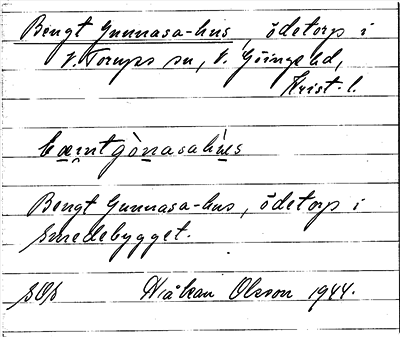 Bengt Gunnasa-hus, ödetorp i
V. Torups sn, V. Göinge hd,
Krist. l.
bæntgònasahùs
Bengt Gunnasa-hus, ödetorp i
Smedebygget.
Håkan Olsson 1944.